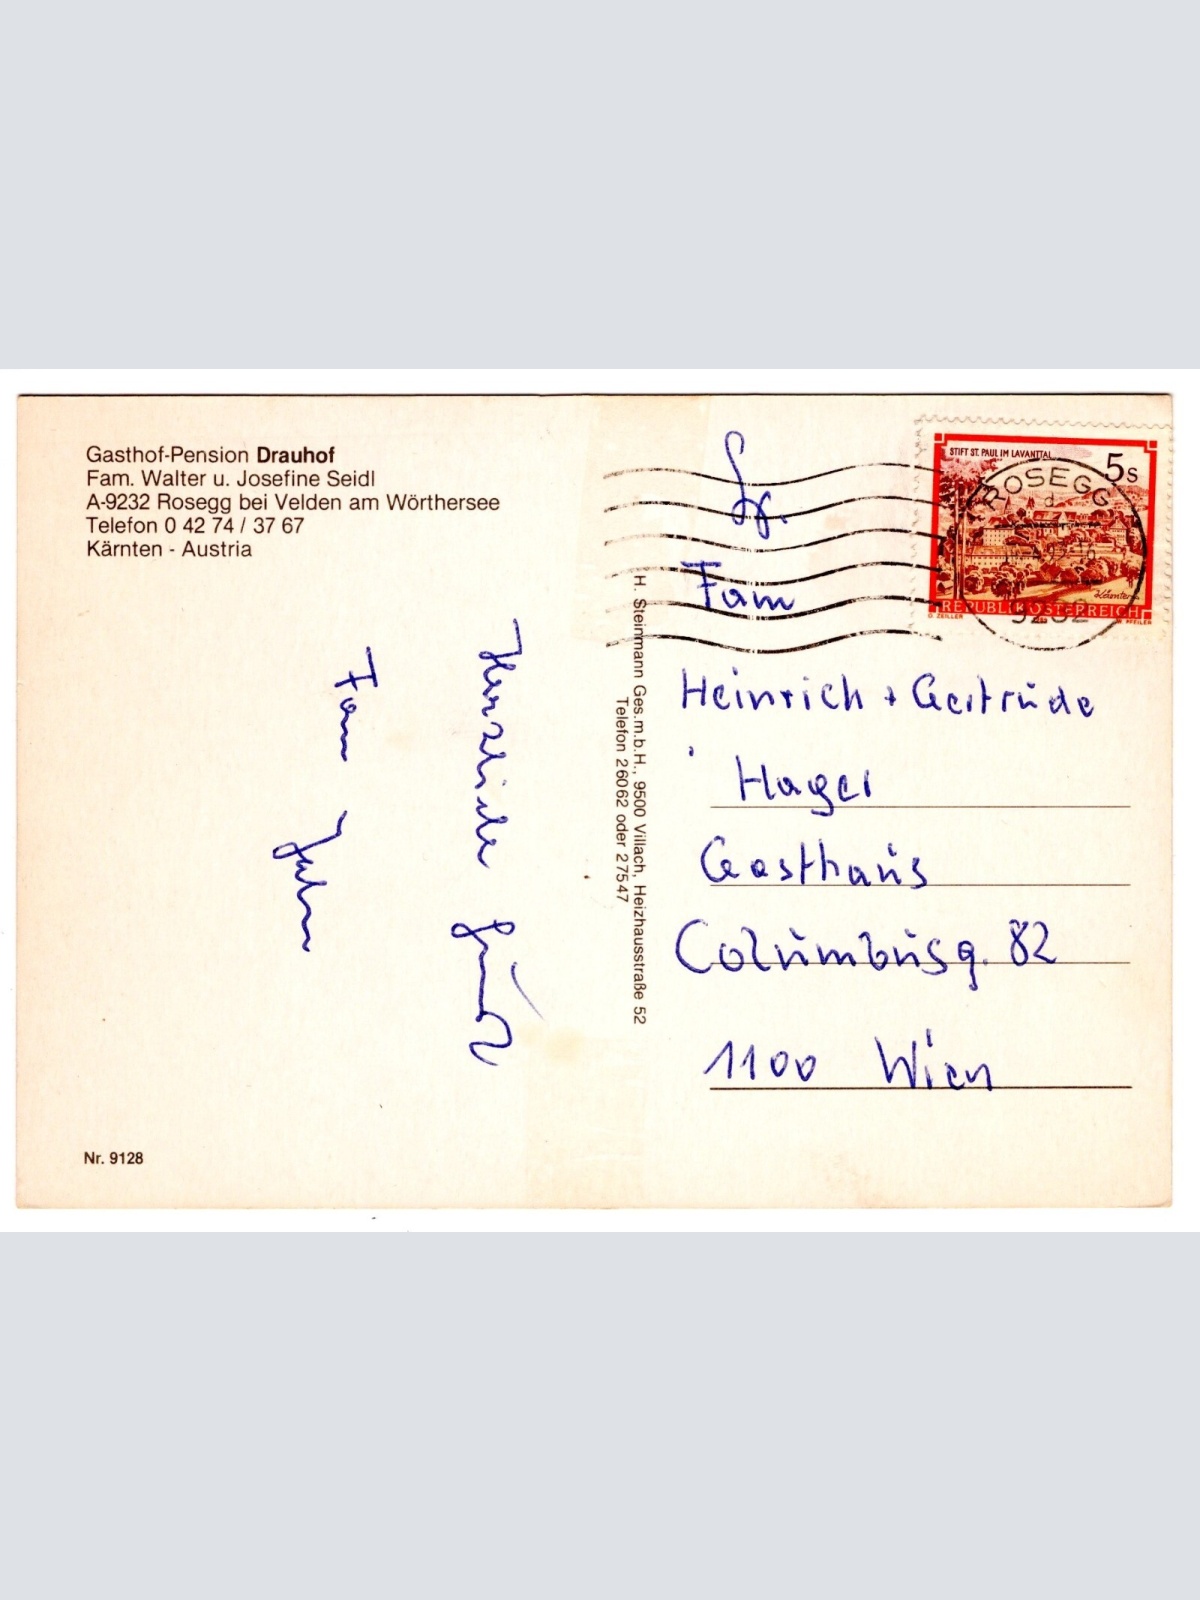 Gasthof-Pension Drauhof
Fam. Walter u. Josefine Seidl
A-9232 Rosegg bei Velden am Wörthersee
Telefon 0 42 74 / 37 67
Kärnten - Austria
Herzliche Grüße
Fam
Nr. 9128
H. Steinmann Ges.m.b.H., 9500 Villach, Heizhausstraße 52
Telefon 26062 oder 27547
STIFT ST. PAUL IM LAVANTTAL
5s
Kärnten
REPUBLIK ÖSTERREICH
G. ZEILLER
PFEILER
ROSEGG
d
9232
Fam
Heinrich + Gertrude
Hager
Gasthaus
Columbusg. 82
1100 Wien